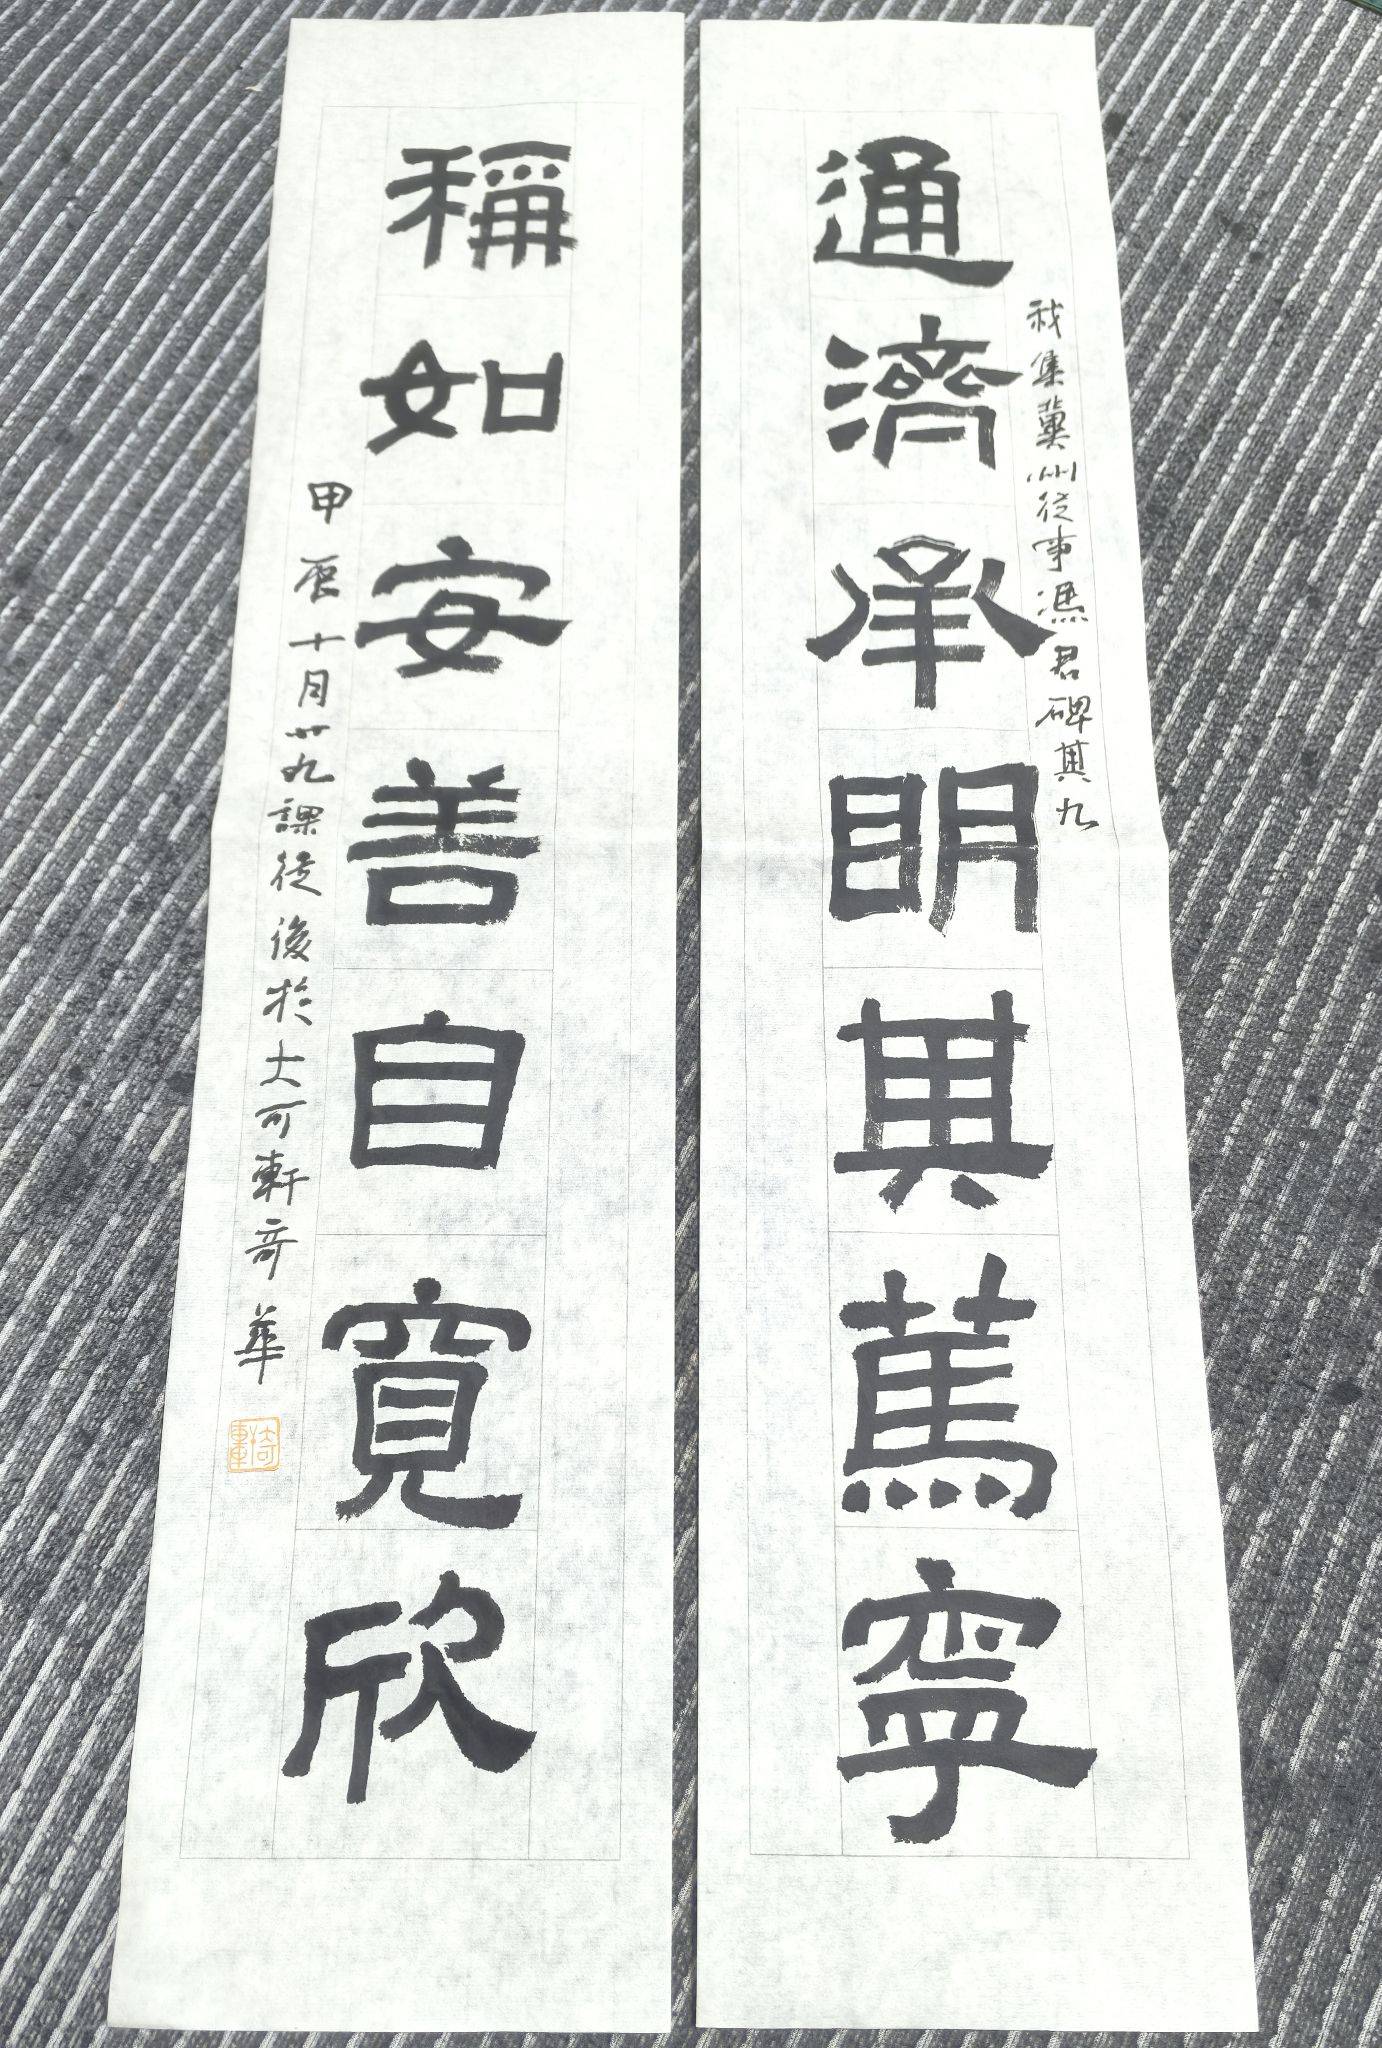 通濟承明其篤寧
我集冀州從事馮君碑其九
稱如安善自寬欣
甲辰十月廿九課徒後於大可軒奇華